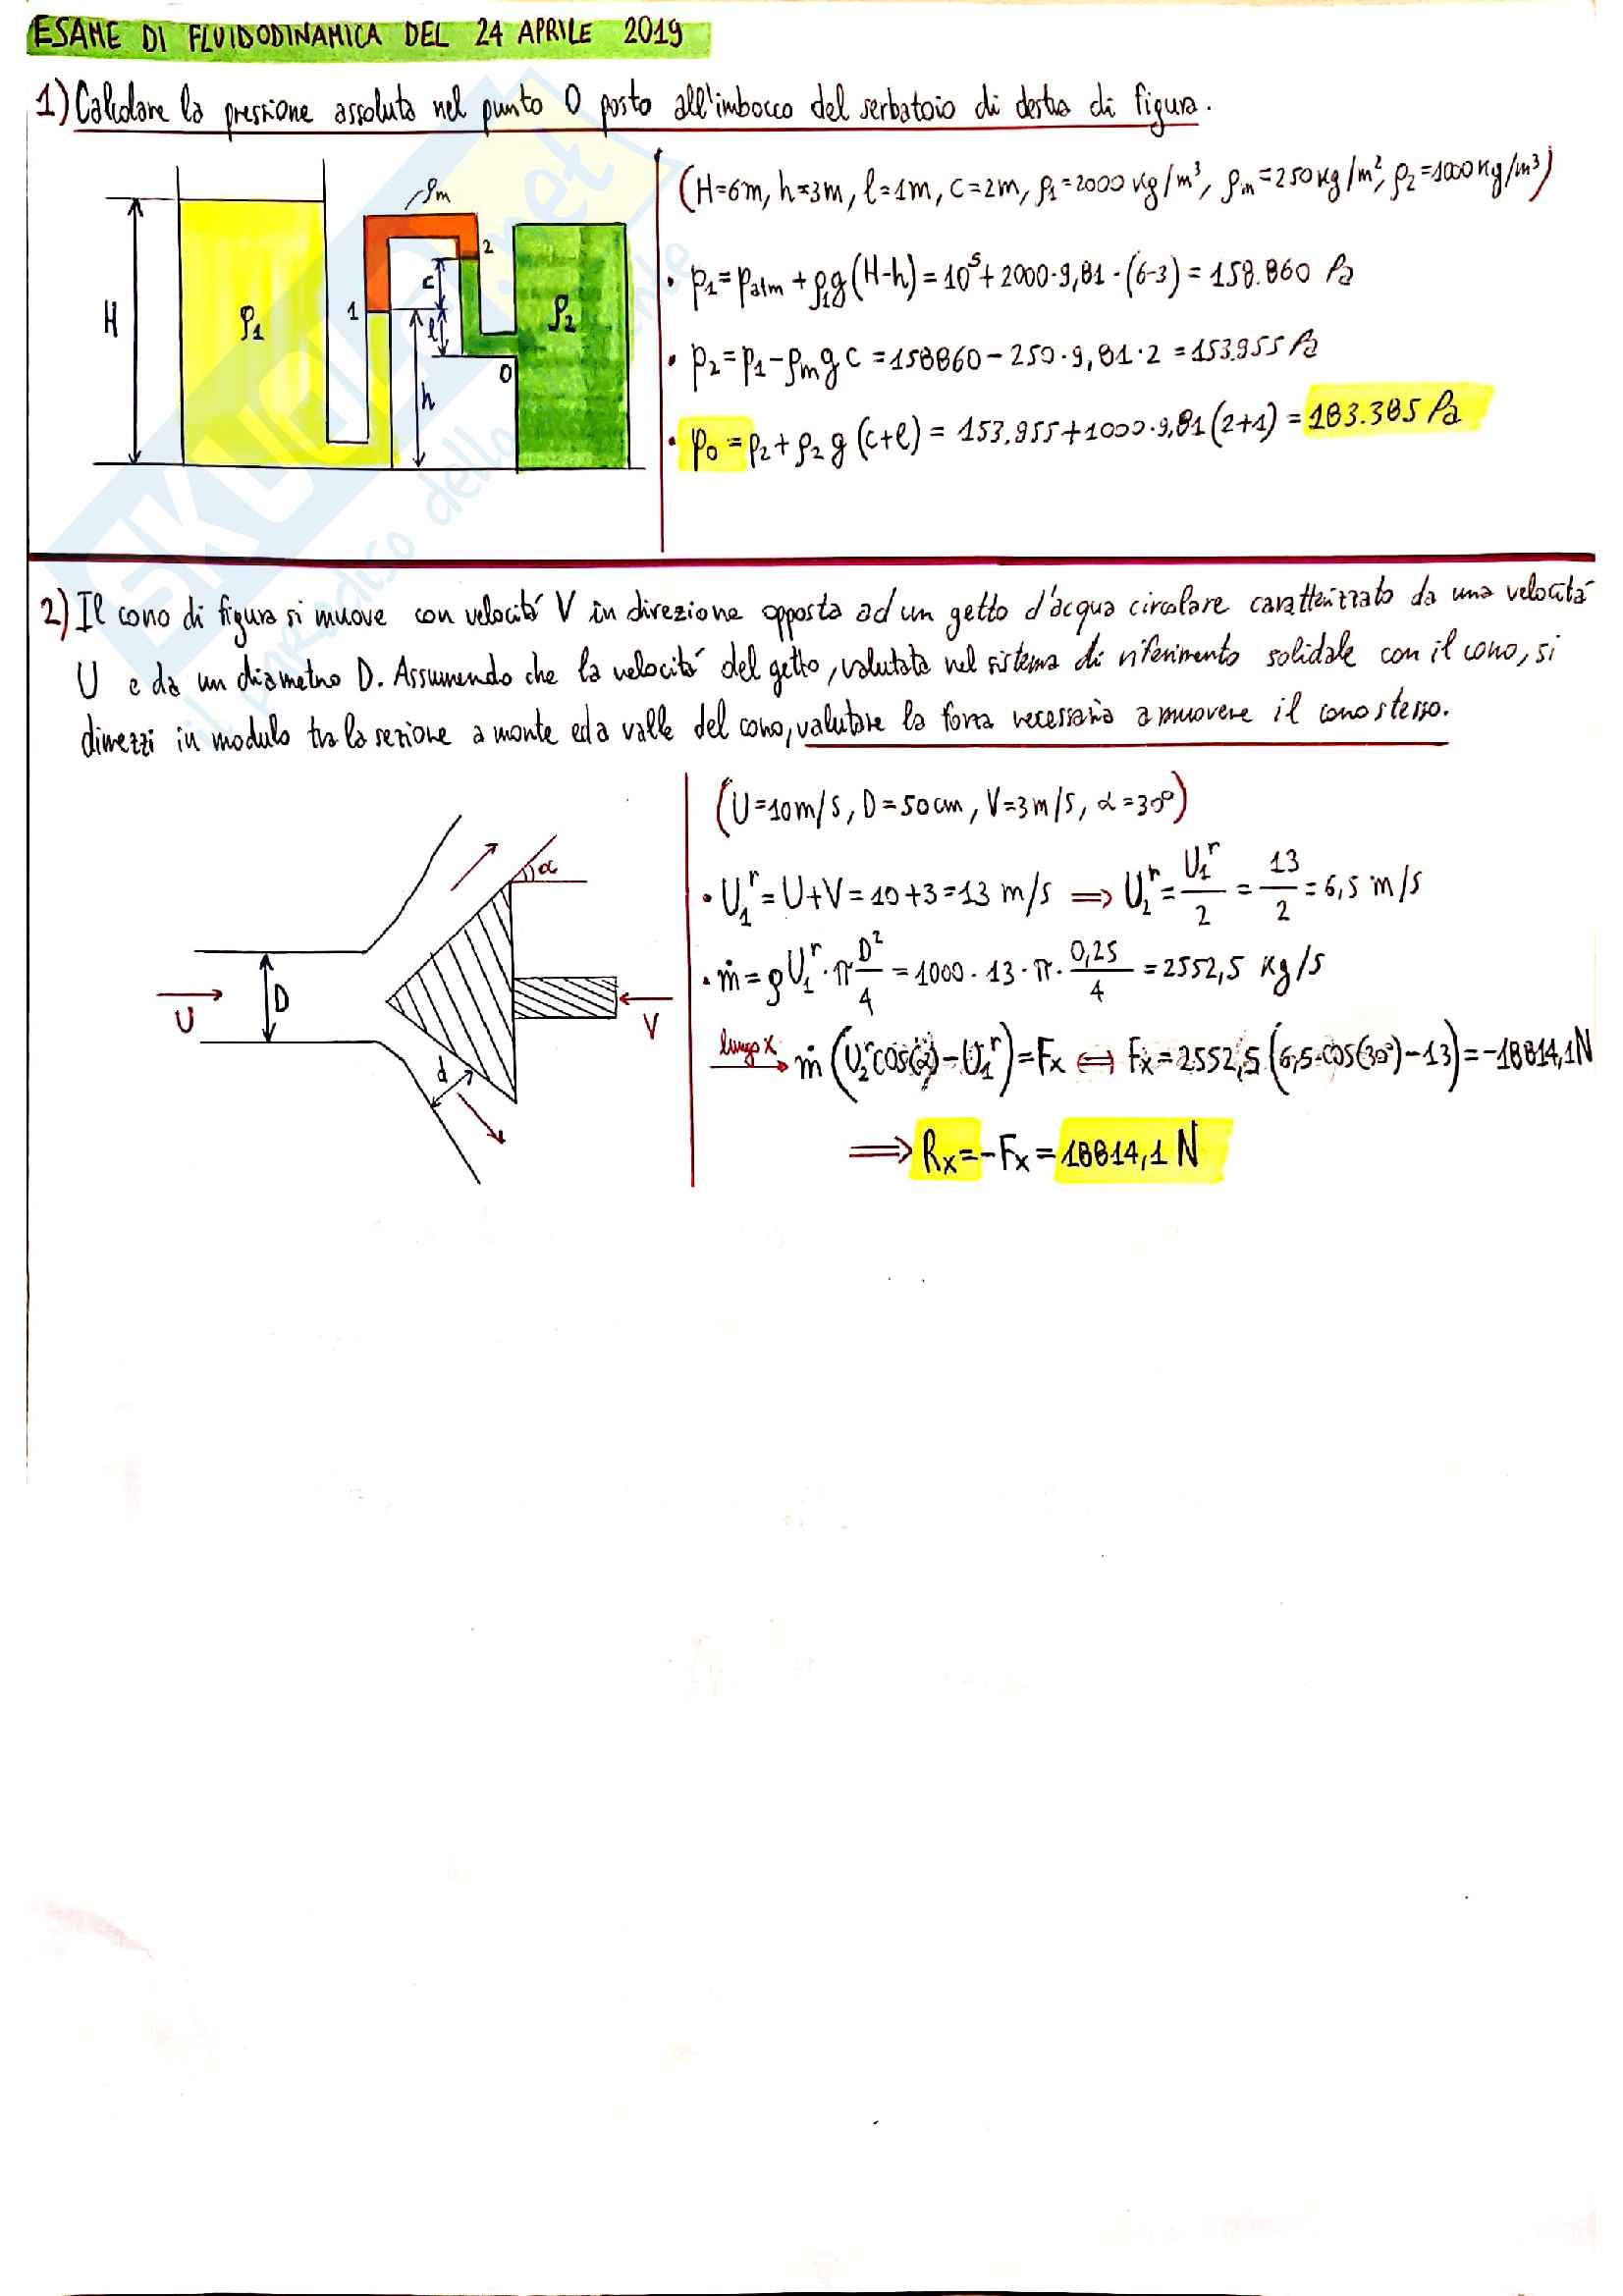 ESAME DI FLUIDODINAMICA DEL 24 APRILE 2019
1) Calcolare la pressione assoluta nel punto O posto all'imbocco del serbatoio di destra di figura.
(H=6m, h=3m, l=1m, C=2m, ρ₁=2000 Kg/m³, ρm=250 Kg/m², ρ₂=1000 Kg/m³)
ρm
H
ρ₁
1
2
C
l
h
O
ρ₂
• p₁=patm+ρ₁g(H-h)=10⁵+2000·9,81·(6-3)=158.860 Pa
• p₂=p₁-ρmgC=158860-250·9,81·2=153.955 Pa
• p₀=p₂+ρ₂g(C+l)=153.955+1000·9,81(2+1)=183.385 Pa
2) Il cono di figura si muove con velocitá V in direzione opposta ad un getto d'acqua circolare caratterizzato da una velocitá
U e da un diametro D. Assumendo che la velocitá del getto, valutata nel sistema di riferimento solidale con il cono, si
dimezzi in modulo tra la sezione a monte ed a valle del cono, valutare la forza necessaria a muovere il cono stesso.
(U=10m/s, D=50cm, V=3m/s, α=30°)
α
U
D
d
V
• U₁ʳ=U+V=10+3=13 m/s ⟹ U₂ʳ=U₁ʳ/2=13/2=6,5 m/s
• ṁ=ρU₁ʳ·πD²/4=1000·13·π·0,25/4=2552,5 Kg/s
lungo x → ṁ(U₂ʳcos(α)-U₁ʳ)=Fx ⟺ Fx=2552,5(6,5·cos(30°)-13)=-18814,1N
⟹ Rx=-Fx=18814,1 N
SKUOLA.net
il paradiso dello studente